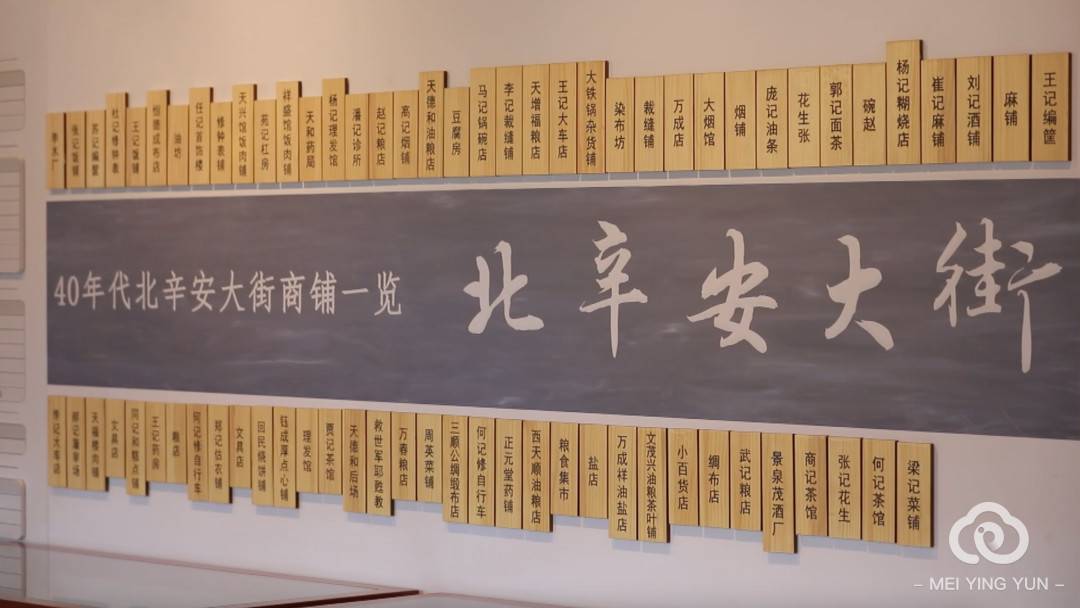 张记饭铺
苏记编筐
杜记修钟表
王记饭铺
恒德成布店
油坊
任记首饰楼
修钟表铺
天兴馆饭肉铺
苑记杠房
祥盛馆饭肉铺
天和药局
杨记理发馆
潘记诊所
赵记粮店
高记烟铺
天德和油粮店
豆腐房
马记锅碗店
李记裁缝铺
天增福粮店
王记大车店
大铁锅杂货铺
染布坊
裁缝铺
万成店
大烟馆
烟铺
庞记油条
花生张
郭记面茶
碗赵
杨记糊烧店
崔记麻铺
刘记酒铺
麻铺
王记编筐
40年代北辛安大街商铺一览
北辛安大街
天福楼肉铺
文具店
同记和糕点铺
王记药房
粮店
何记修自行车
郑记估衣铺
文具店
回民烧饼铺
钰成厚点心铺
理发馆
贾记茶馆
天德和后场
救世军耶甦教
万春粮店
周英菜铺
三顺公绸缎布店
何记修自行车
正元堂药铺
西天顺油粮店
粮食集市
盐店
万成祥油盐店
文茂兴油粮茶叶铺
小百货店
绸布店
武记粮店
景泉茂酒厂
商记茶馆
张记花生
何记茶馆
梁记菜铺
– MEI YING YUN –